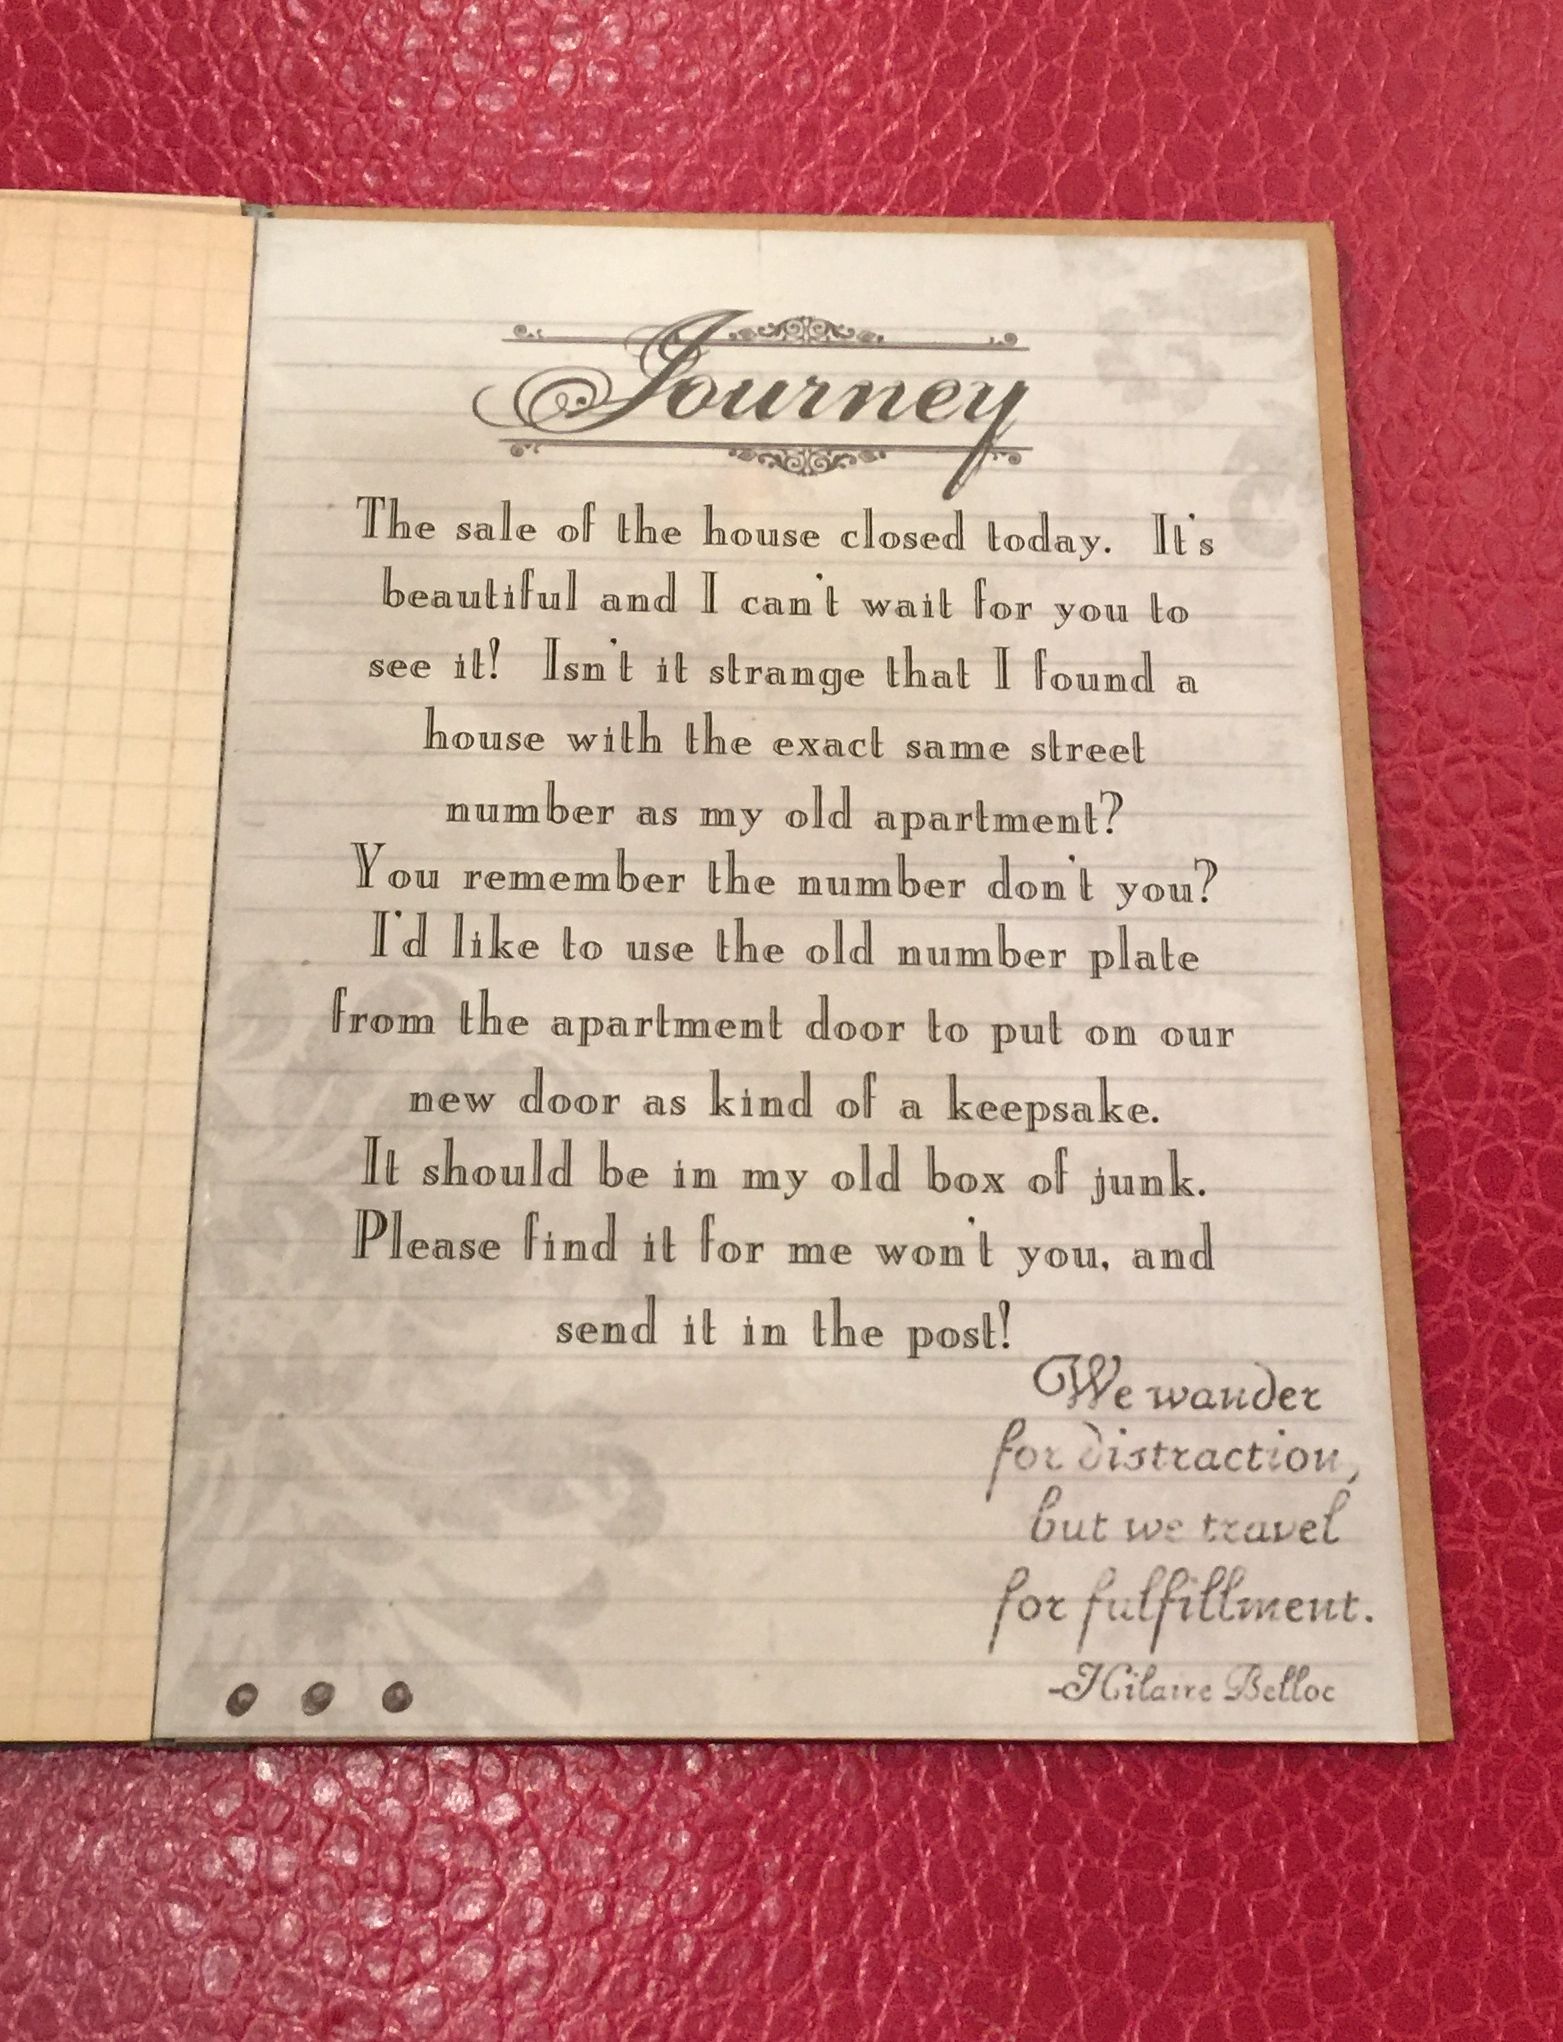 Journey
The sale of the house closed today. It's
beautiful and I can't wait for you to
see it! Isn't it strange that I found a
house with the exact same street
number as my old apartment?
You remember the number don't you?
I'd like to use the old number plate
from the apartment door to put on our
new door as kind of a keepsake.
It should be in my old box of junk.
Please find it for me won't you, and
send it in the post!
We wander
for distraction,
but we travel
for fulfillment.
-Hilaire Belloc